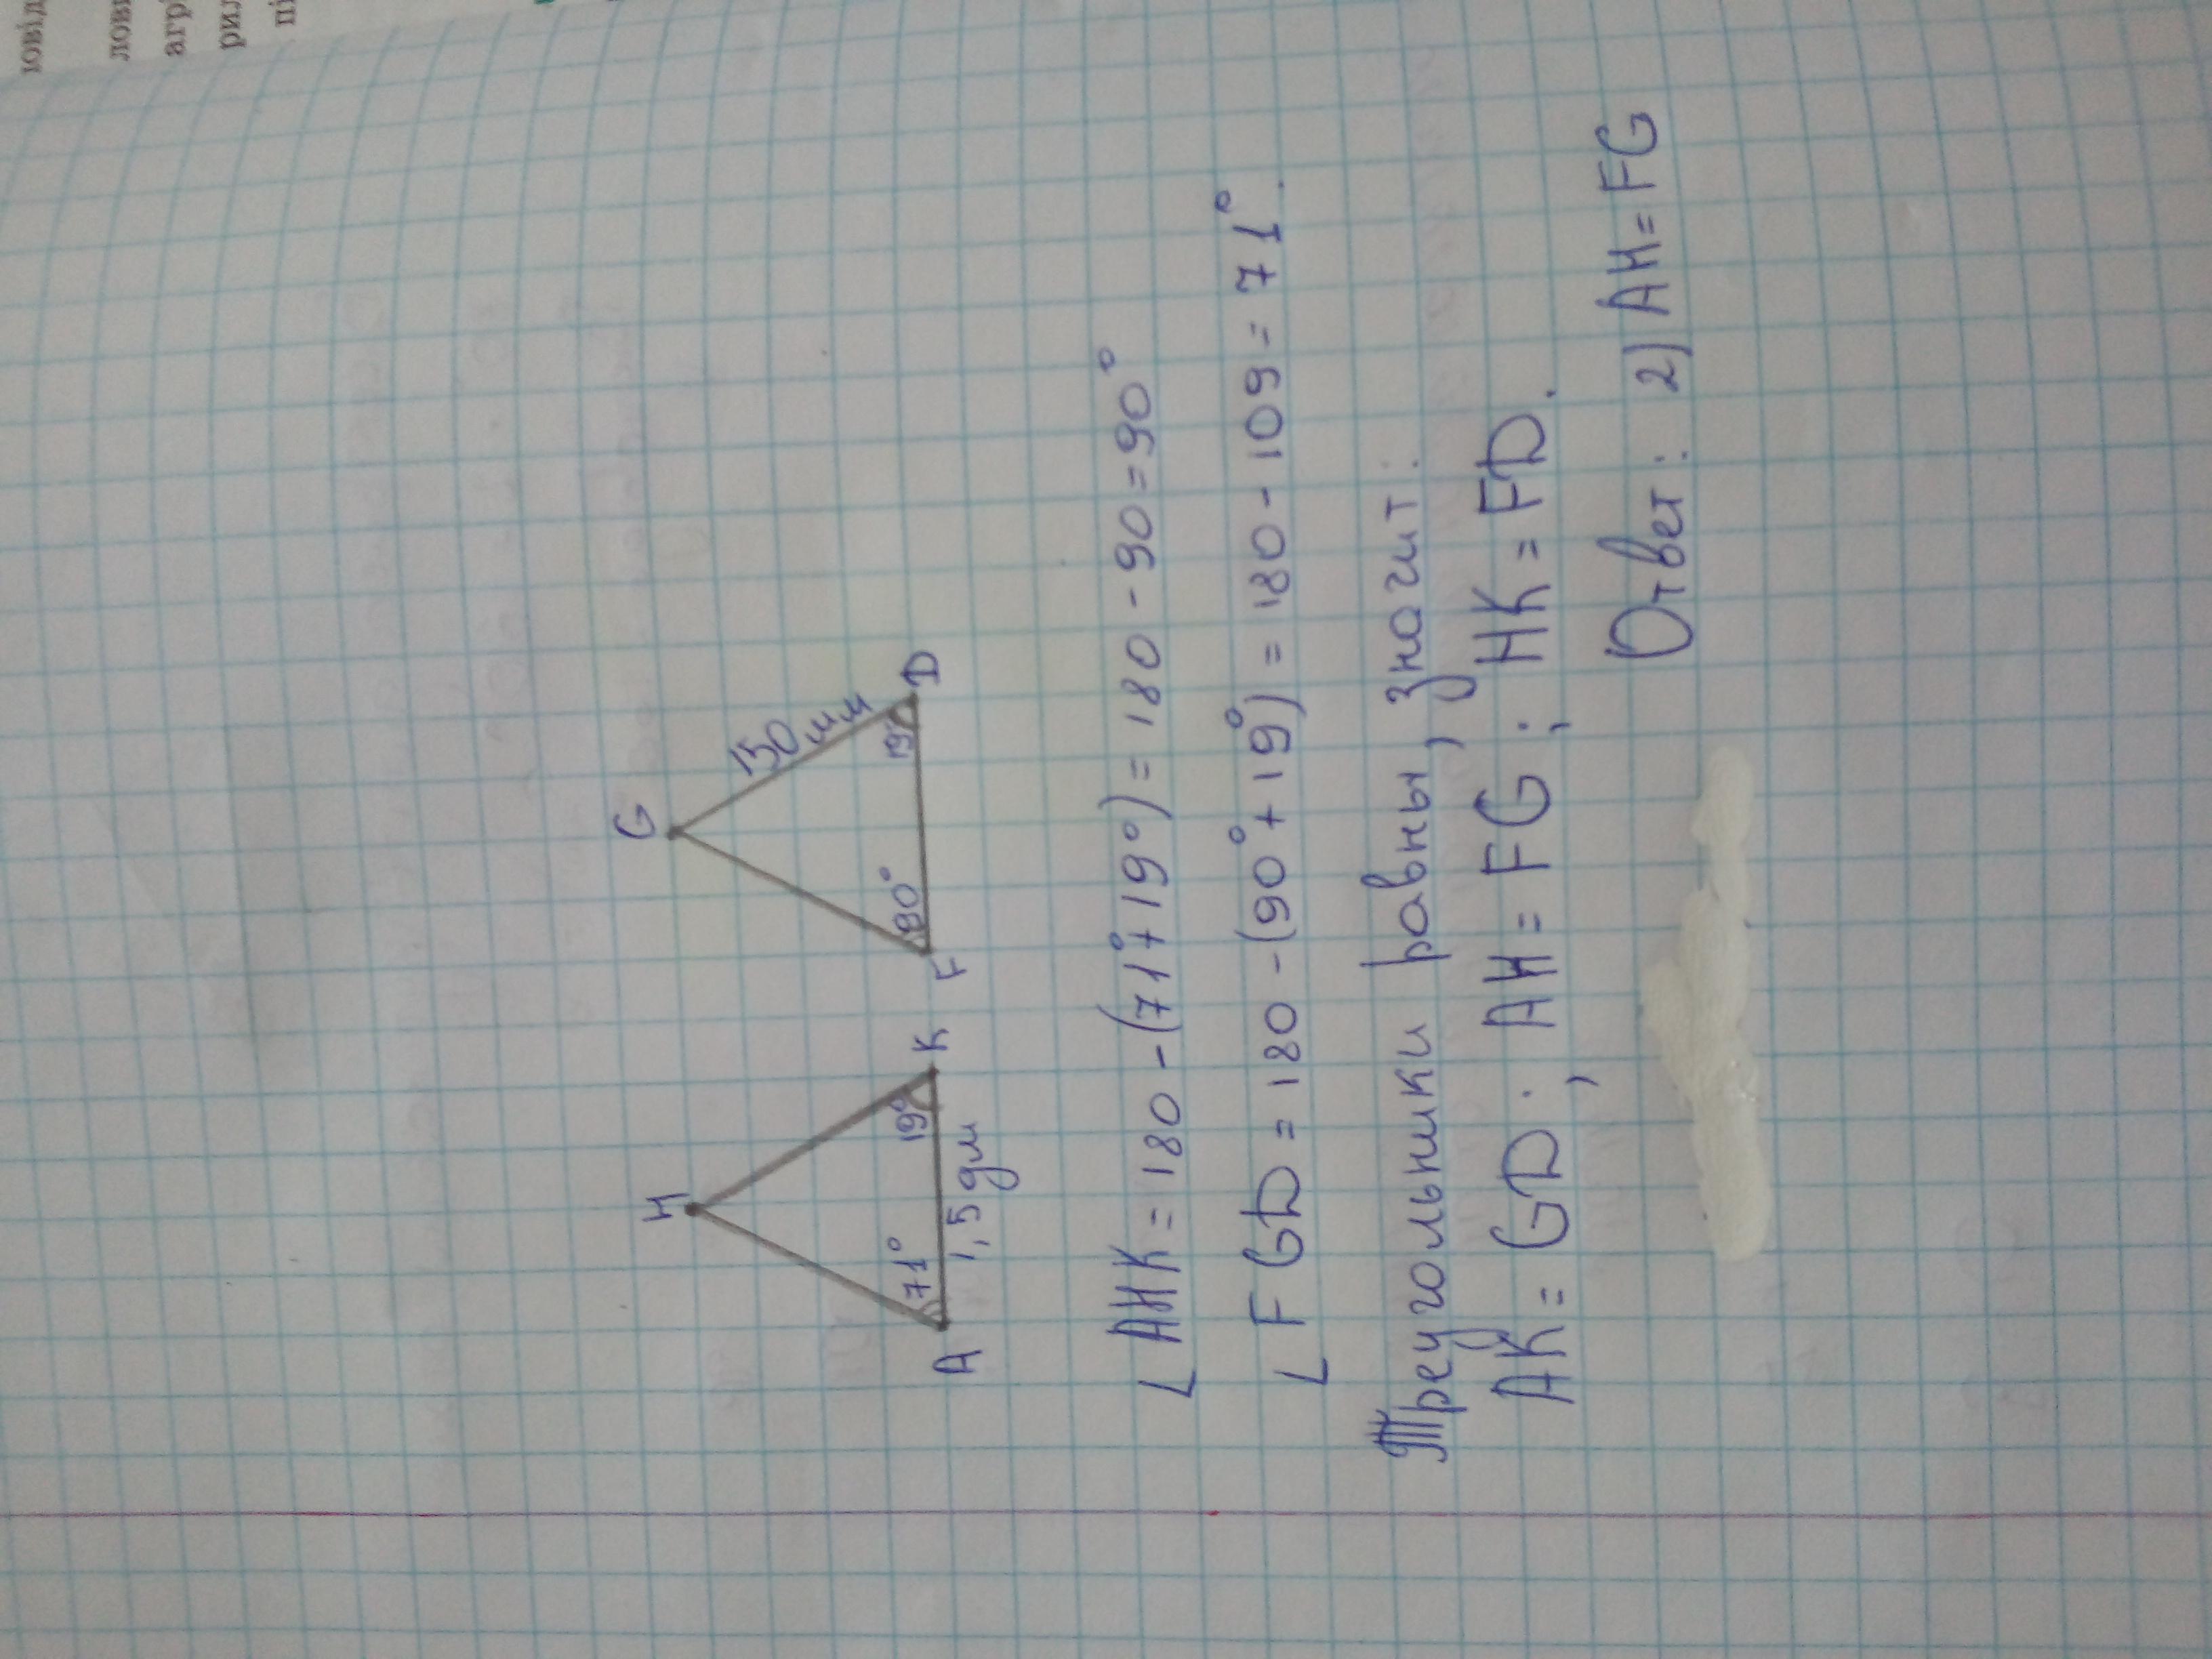 H
G
150 мм
71°
19°
90°
19°
A
K
F
D
1,5 дм
∠ AHK = 180 - (71°+19°) = 180 - 90 = 90°
∠ FGD = 180 - (90°+19°) = 180 - 109 = 71°.
Треугольники равны, значит:
AK = GD; AH = FG; HK = FD.
Ответ: 2) AH = FG